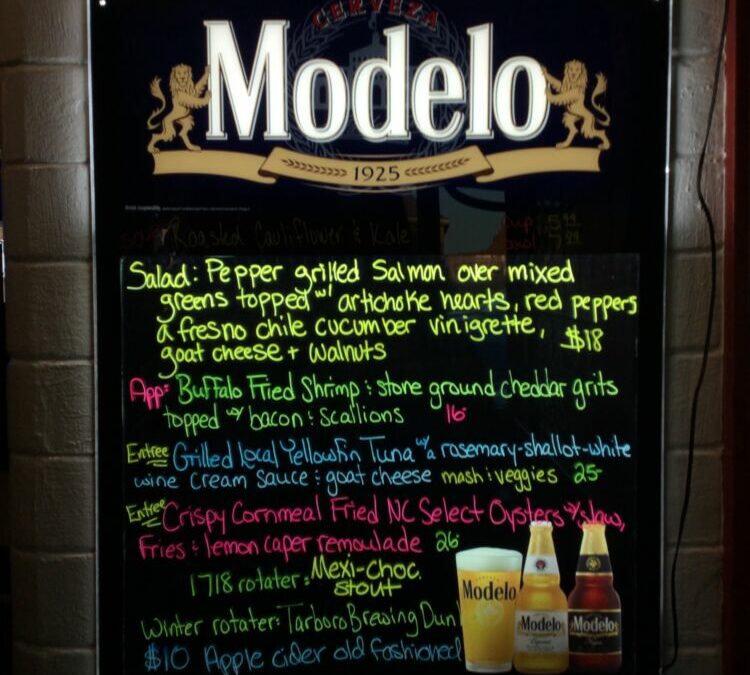 CERVEZA
Modelo
1925
Roasted Cauliflower & Kale
Salad: Pepper grilled Salmon over mixed
greens topped w/ artichoke hearts, red peppers
a fresno chile cucumber vinigrette, $18
goat cheese + walnuts
App: Buffalo Fried Shrimp : stone ground cheddar grits
topped w/ bacon : scallions 16
Entree Grilled local Yellowfin Tuna w/ a rosemary-shallot-white
wine cream sauce : goat cheese mash : veggies 25-
Entree Crispy Cornmeal Fried NC Select Oysters w/ slaw,
Fries : lemon caper remoulade 26
1718 rotater: Mexi-choc.
stout
Winter rotater: Tarboro Brewing Dun
$10 Apple cider old fashioned
Modelo
Modelo
Modelo